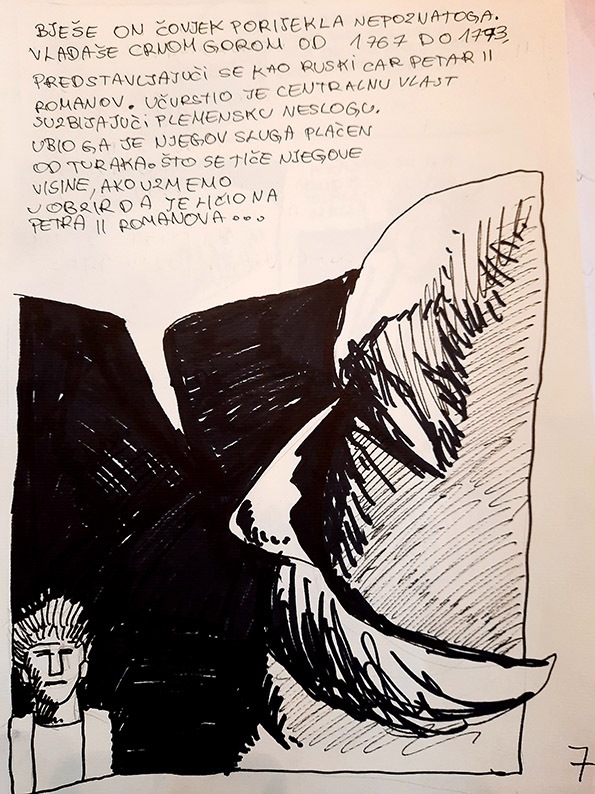 BJEŠE ON ČOVJEK PORIJEKLA NEPOZNATOGA.
VLADAŠE CRNOM GOROM OD 1767 DO 1773,
PREDSTAVLJAJUČI SE KAO RUSKI CAR PETAR II
ROMANOV. UČURSTIO JE CENTRALNU VLAST
SUZBIJAJUČI PLEMENSKU NESLOGU.
UBIO GA JE NJEGOV SLUGA PLAČEN
OD TURAKA. ŠTO SE TIČE NJEGOVE
VISINE, AKO UZMEMO
U OBZIR DA JE LIČIO NA
PETRA II ROMANOVA...
7